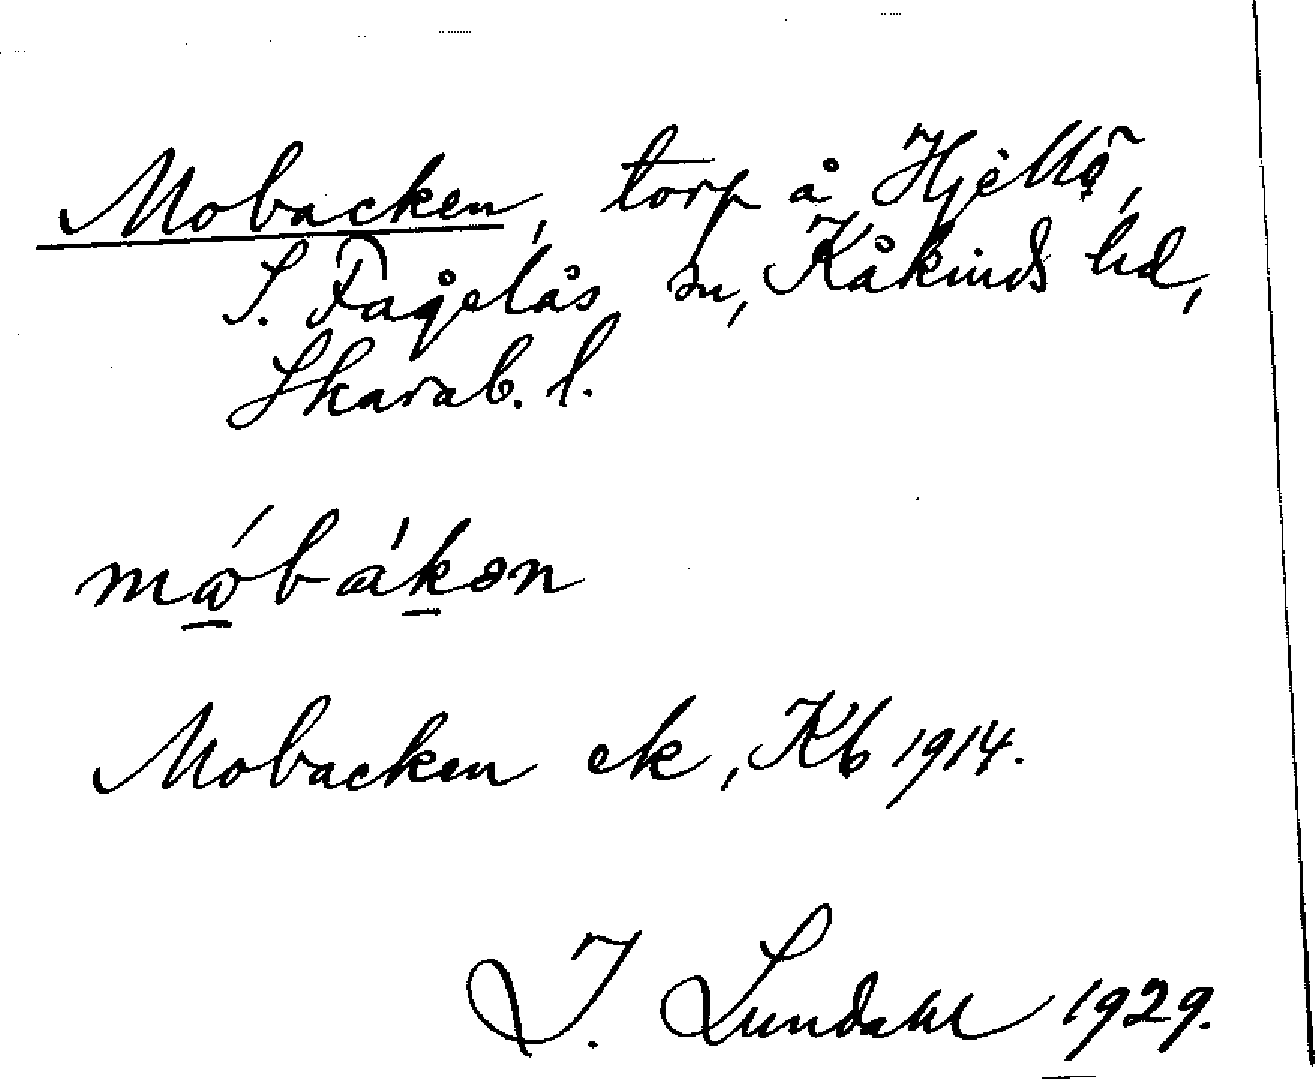 Mobacken, torp å Hjällö,
S. Fågelås sn, Kåkinds hd,
Skarab. l.
Mobacken ek, Kb 1914.
I. Lundahl 1929.